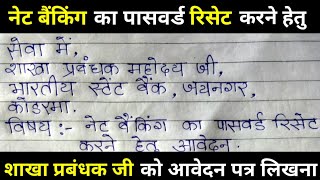 नेट बैंकिंग का पासवर्ड रिसेट करने हेतु
सेवा में,
शाखा प्रबंधक महोदय जी,
भारतीय स्टेट बैंक, जयनगर,
कोडरमा.
विषय:- नेट बैंकिंग का पासवर्ड रिसेट
करने हेतु आवेदन.
शाखा प्रबंधक जी को आवेदन पत्र लिखना